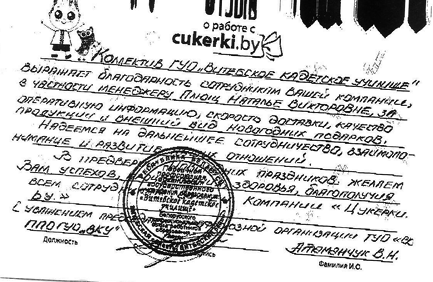 ОТЗЫВ
о работе с
cukerki.by
Коллектив ГУО „Витебское кадетское училище"
выражает благодарность сотрудникам вашей компании,
в частности менеджеру Плющ Наталье Викторовне, за
оперативную информацию, скорость доставки, качество
продукции и внешний вид новогодних подарков.
Надеемся на дальнейшее сотрудничество, взаимопо-
нимание и развитие отношений.
В предверии праздников желаем
Вам успехов, здоровья, благополучия
всем сотруд компании « Цукерки.
Бу.»
С уважением пред организации ГУО «ВС
ППО ГУО „ВКУ
Должность
Фамилия И.О.